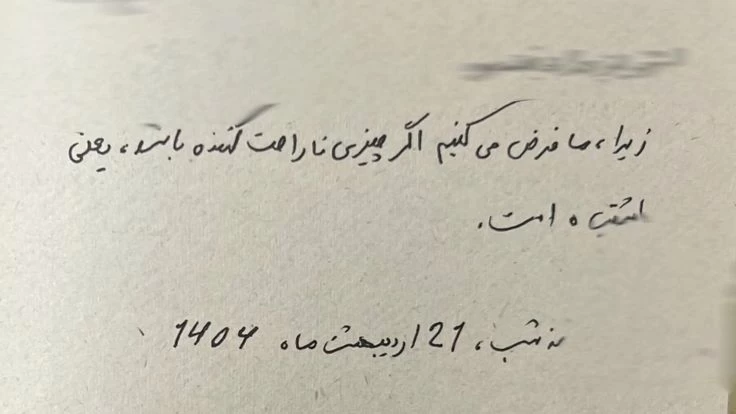 زیرا، ما فرض می کنیم اگر چیزی ناراحت کننده باشد، یعنی
اشتباه است.
نه شب، 21 اردیبهشت ماه 1404